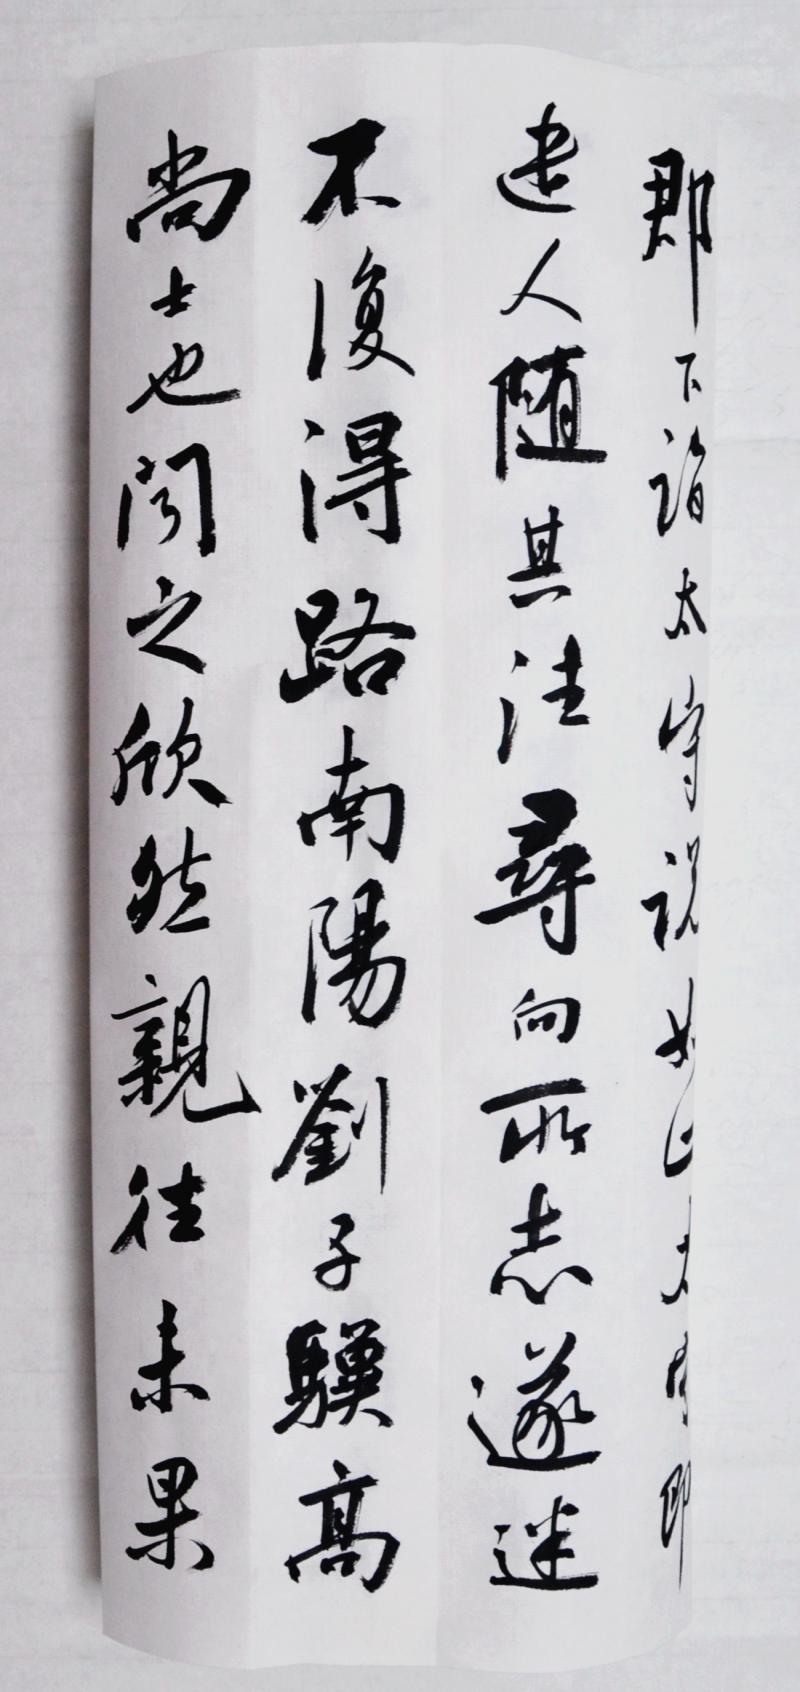 郡下詣太守說如此太守即
遣人隨其往尋向所志遂迷
不復得路南陽劉子驥高
尚士也聞之欣然親往未果